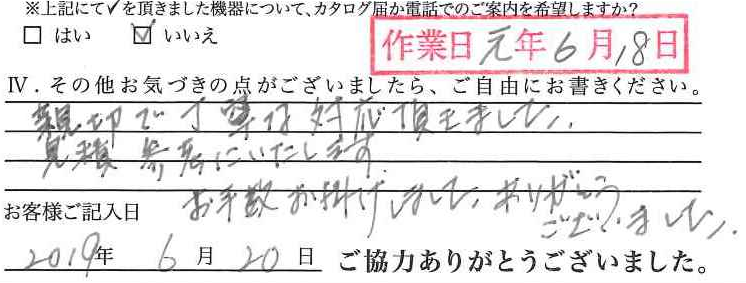 ※上記にて✓を頂きました機器について、カタログ届か電話でのご案内を希望しますか?
□ はい ☑ いいえ
作業日 元年6月18日
Ⅳ．その他お気づきの点がございましたら、ご自由にお書きください。
親切で丁寧な対応頂きました。
見積参考にいたします
お手数お掛けしました。ありがとう
ございました。
お客様ご記入日
2019年 6月20日 ご協力ありがとうございました。